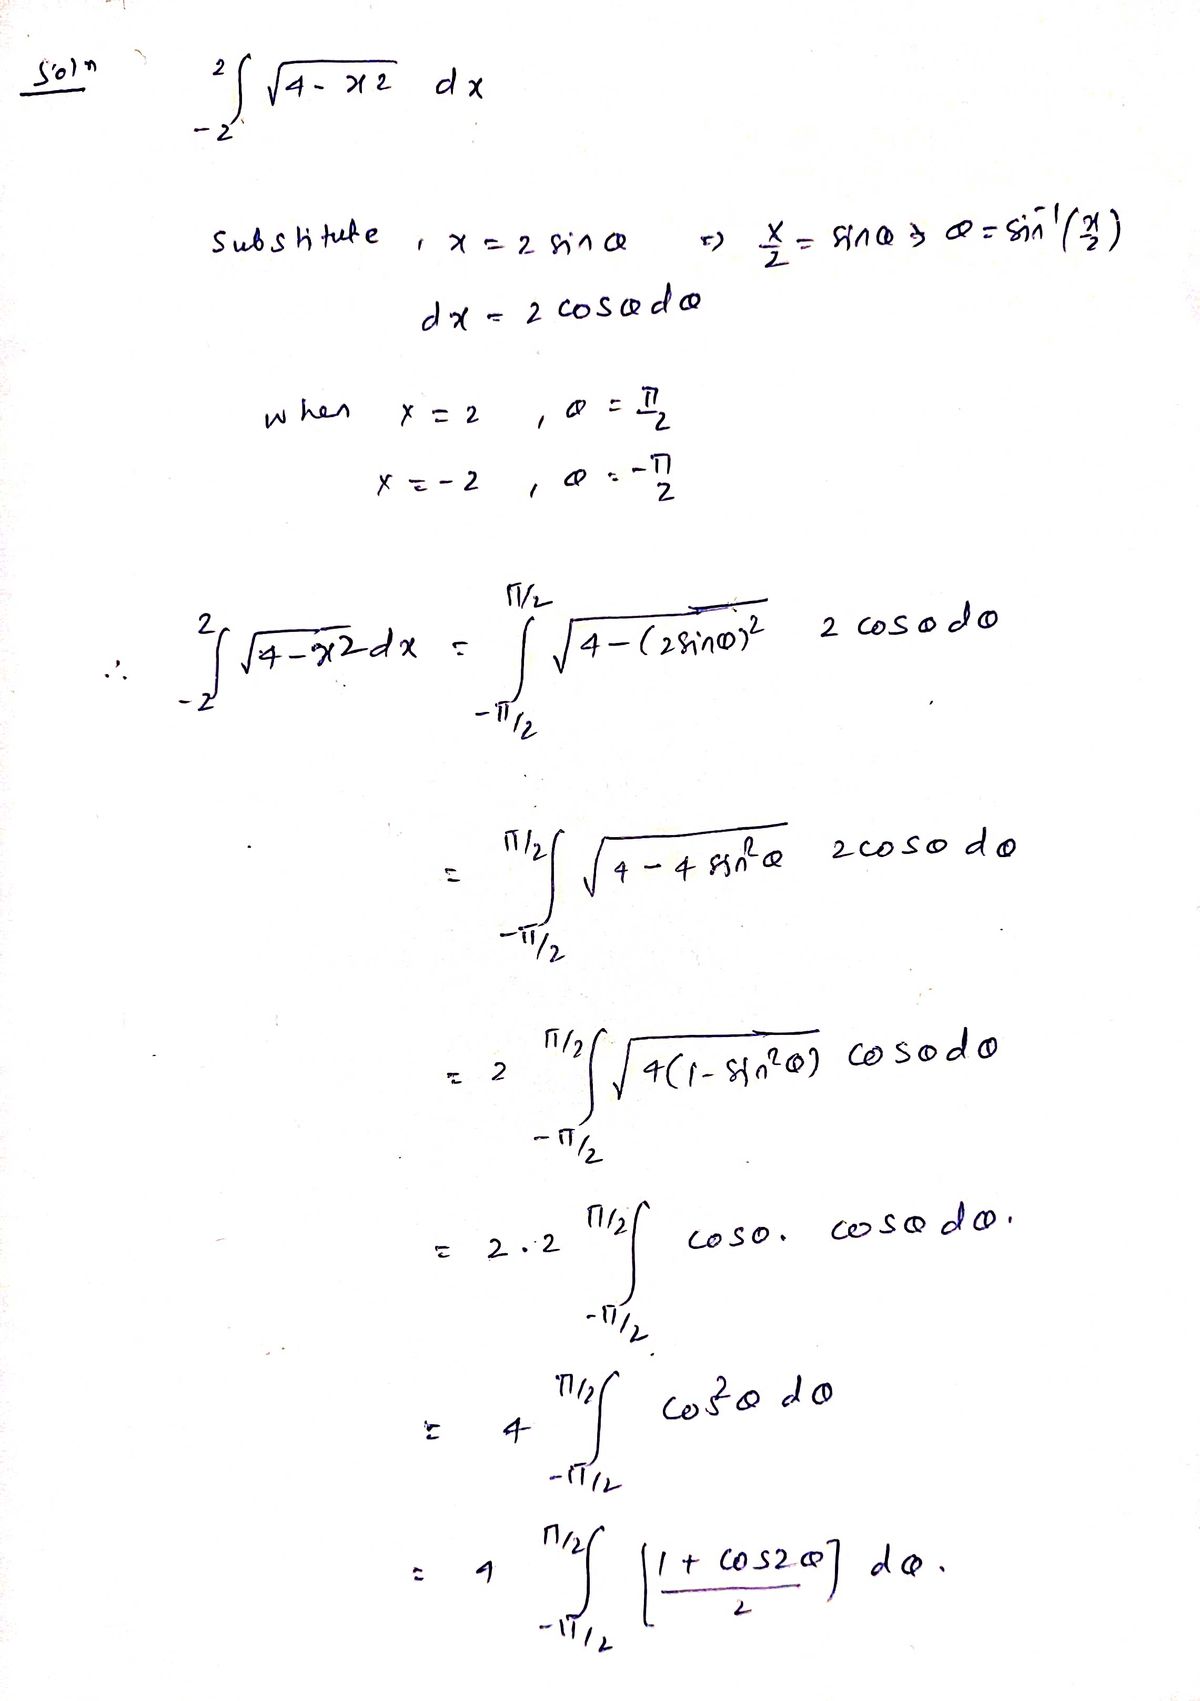 Soln ₋₂²∫ √(4-x2) dx
Substitute, x = 2 sin θ ⇒ x/2 = sin θ ⇒ θ = sin⁻¹(x/2)
dx = 2 cos θ dθ
when x = 2, θ = π/2
x = -2, θ = -π/2
∴ ₋₂²∫ √(4-x2) dx = ∫_{-π/2}^{π/2} √(4-(2sinθ)²) 2 cos θ dθ
= ∫_{-π/2}^{π/2} √(4 - 4 sin²θ) 2 cos θ dθ
= 2 ∫_{-π/2}^{π/2} √(4(1-sin²θ)) cos θ dθ
= 2.2 ∫_{-π/2}^{π/2} cos θ. cos θ dθ.
= 4 ∫_{-π/2}^{π/2} cos²θ dθ
= 4 ∫_{-π/2}^{π/2} [(1 + cos2θ)/2] dθ.